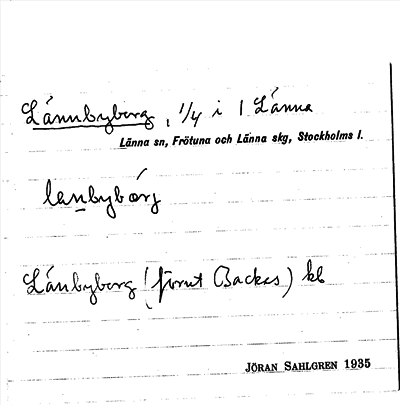 Lännbyberg, 1/4 i 1 Länna
Länna sn, Frötuna och Länna skg, Stockholms l.
lenbybærj
Länbyberg (förut Backes) kb
JÖRAN SAHLGREN 1935